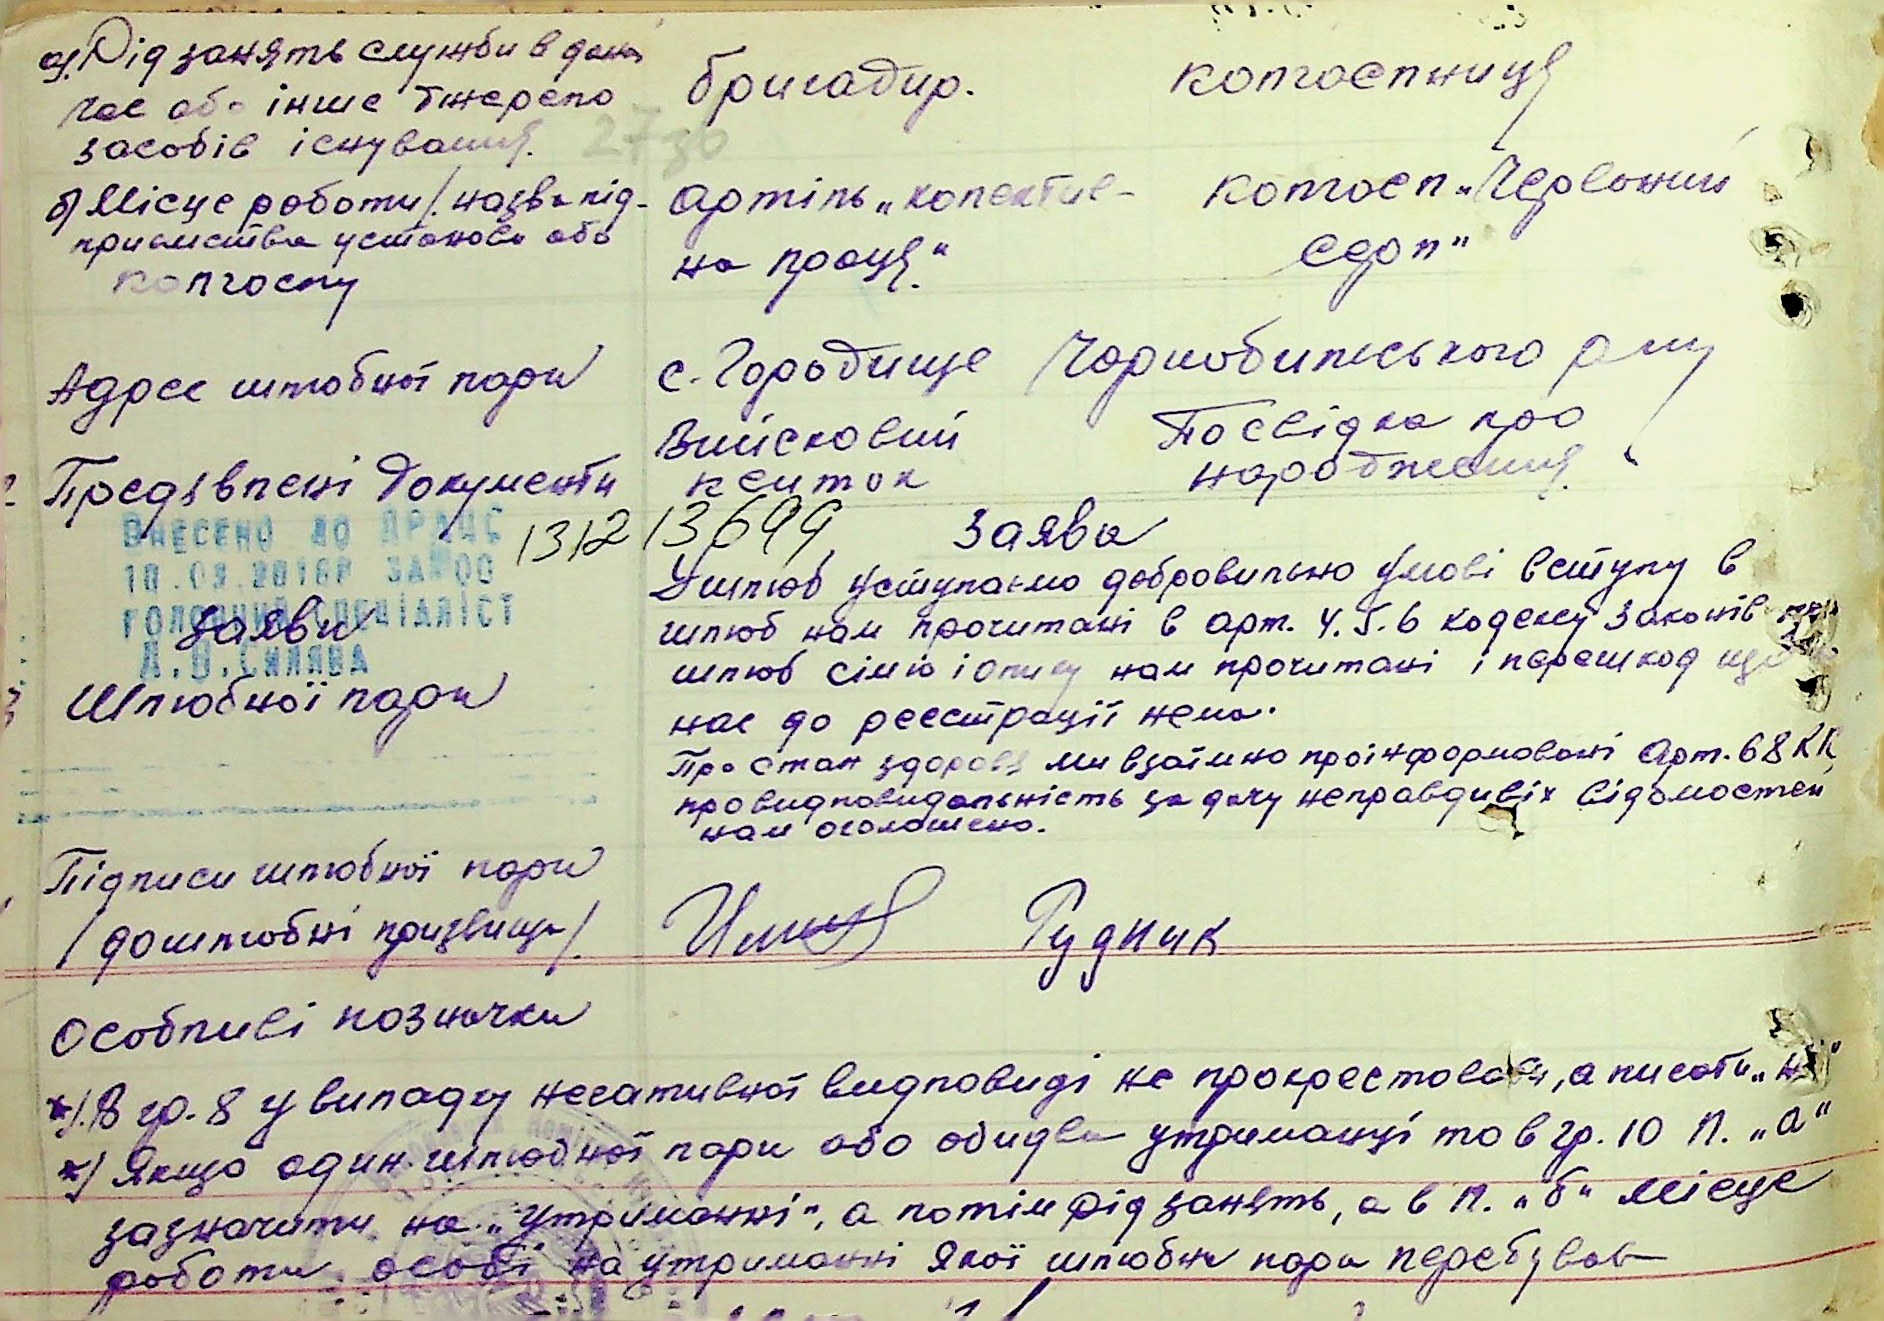 а). Рід занять служби в даний бригадир. колгоспниця
час або інше джерело
засобів існування. 27 30
б) Місце роботи /. назва під- артіль „колектив- колгосп „Червоний
приємства установи або на праця." сдоп"
колгоспу
Адрес шлюбної пари с. Городище Чорнобильського р-ну
Війсковий Посвідка про
Предявлені документи квиток народження.
ВНЕСЕНО ДО ДРАЦС 1312 13699 Заява
10.03.2016Р ЗА №00 У шлюб уступаємо добровильно умові вступу в
ГОЛОВНИЙ СПЕЦІАЛІСТ шлюб нам прочитані в арт. 4.5.6 кодексу законів про
Заяви
шлюб сімю і опику нам прочитані і перешкод що
Шлюбної пари
нас до реєстрації нема.
Про стан здоровя ми взаїмно проінформовані Арт. 68 КК
про видповидальність за дачу неправдивіх відомостей
нам оголошено.
Підписи шлюбної пари
/ дошлюбні призвища /. Рудник
Особливі позначки
*). В гр. 8 у випадку негативної видповиді не прокрестовати, а писати „ні"
*) Якщо один шлюбної пари або обидва утриманці то в гр. 10 п. „а"
зазначити на „утриманні", а потім рід занять, а в п. „б" місце
роботи особі на утриманні якої шлюбна пара перебував